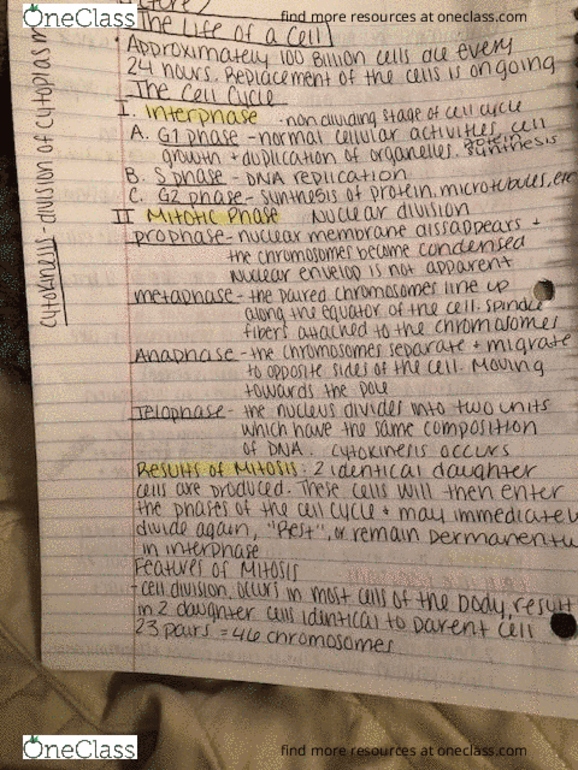 OneClass
find more resources at oneclass.com
The Life of a Cell
· Approximately 100 Billion cells die every
24 hours. Replacement of the cells is ongoing
The Cell Cycle
I. Interphase - non dividing stage of cell cycle
A. G1 phase - normal cellular activities, cell
growth + duplication of organelles. protein synthesis
B. S phase - DNA replication
C. G2 phase - synthesis of protein, microtubules, etc
II Mitotic Phase Nuclear division
prophase - nuclear membrane dissappears +
the chromosomes become condensed
Nuclear envelop is not apparent
metaphase - the paired chromosomes line up
along the equator of the cell. Spindle
fibers attached to the chromosomes
Anaphase - the chromosomes separate + migrate
to opposite sides of the cell. Moving
towards the pole
Telophase - the nucleus divides into two units
which have the same composition
of DNA. cytokinesis occurs
Results of Mitosis: 2 identical daughter
cells are produced. These cells will then enter
the phases of the cell cycle + may immediately
divide again, "Rest", or remain permanently
in interphase
Features of Mitosis
- cell division, occurs in most cells of the body, result
in 2 daughter cells identical to parent cell
23 pairs = 46 chromosomes
cytokinesis - division of cytoplasm
OneClass
find more resources at oneclass.com